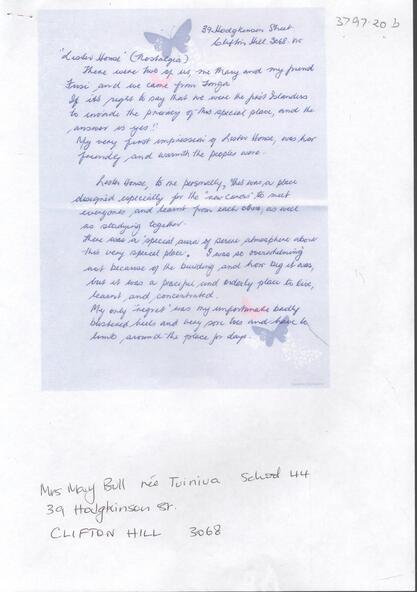 3797.20 b
39 Hodgkinson Street
Clifton Hill 3068. Vic
"Lester House" (Nostalgia)
There were two of us, me Mary and my friend
and we came from Tonga
If its right to say that we were the first Islanders
to invade the privacy of this special place, and the
answer is yes!!
My very first impression of Lester House, was how
friendly, and warmth the peoples were.
Lester House, to me personally, this was, a place
designed especially for the "new comers" to meet
everyone, and learnt from each other, as well
as studying together.
There was a special aura of serene atmosphere about
this very special place. I was so overwhelming
not because of the building and how big it was,
but it was a peaceful and orderly place to live,
learnt, and, concentrated.
My only "regret" was my unfortunate badly
blistered heels and very sore toes and have to
limb, around the place for days.
Mrs Mary Bull née Tuiniua School 44
39 Hodgkinson St.
CLIFTON HILL 3068